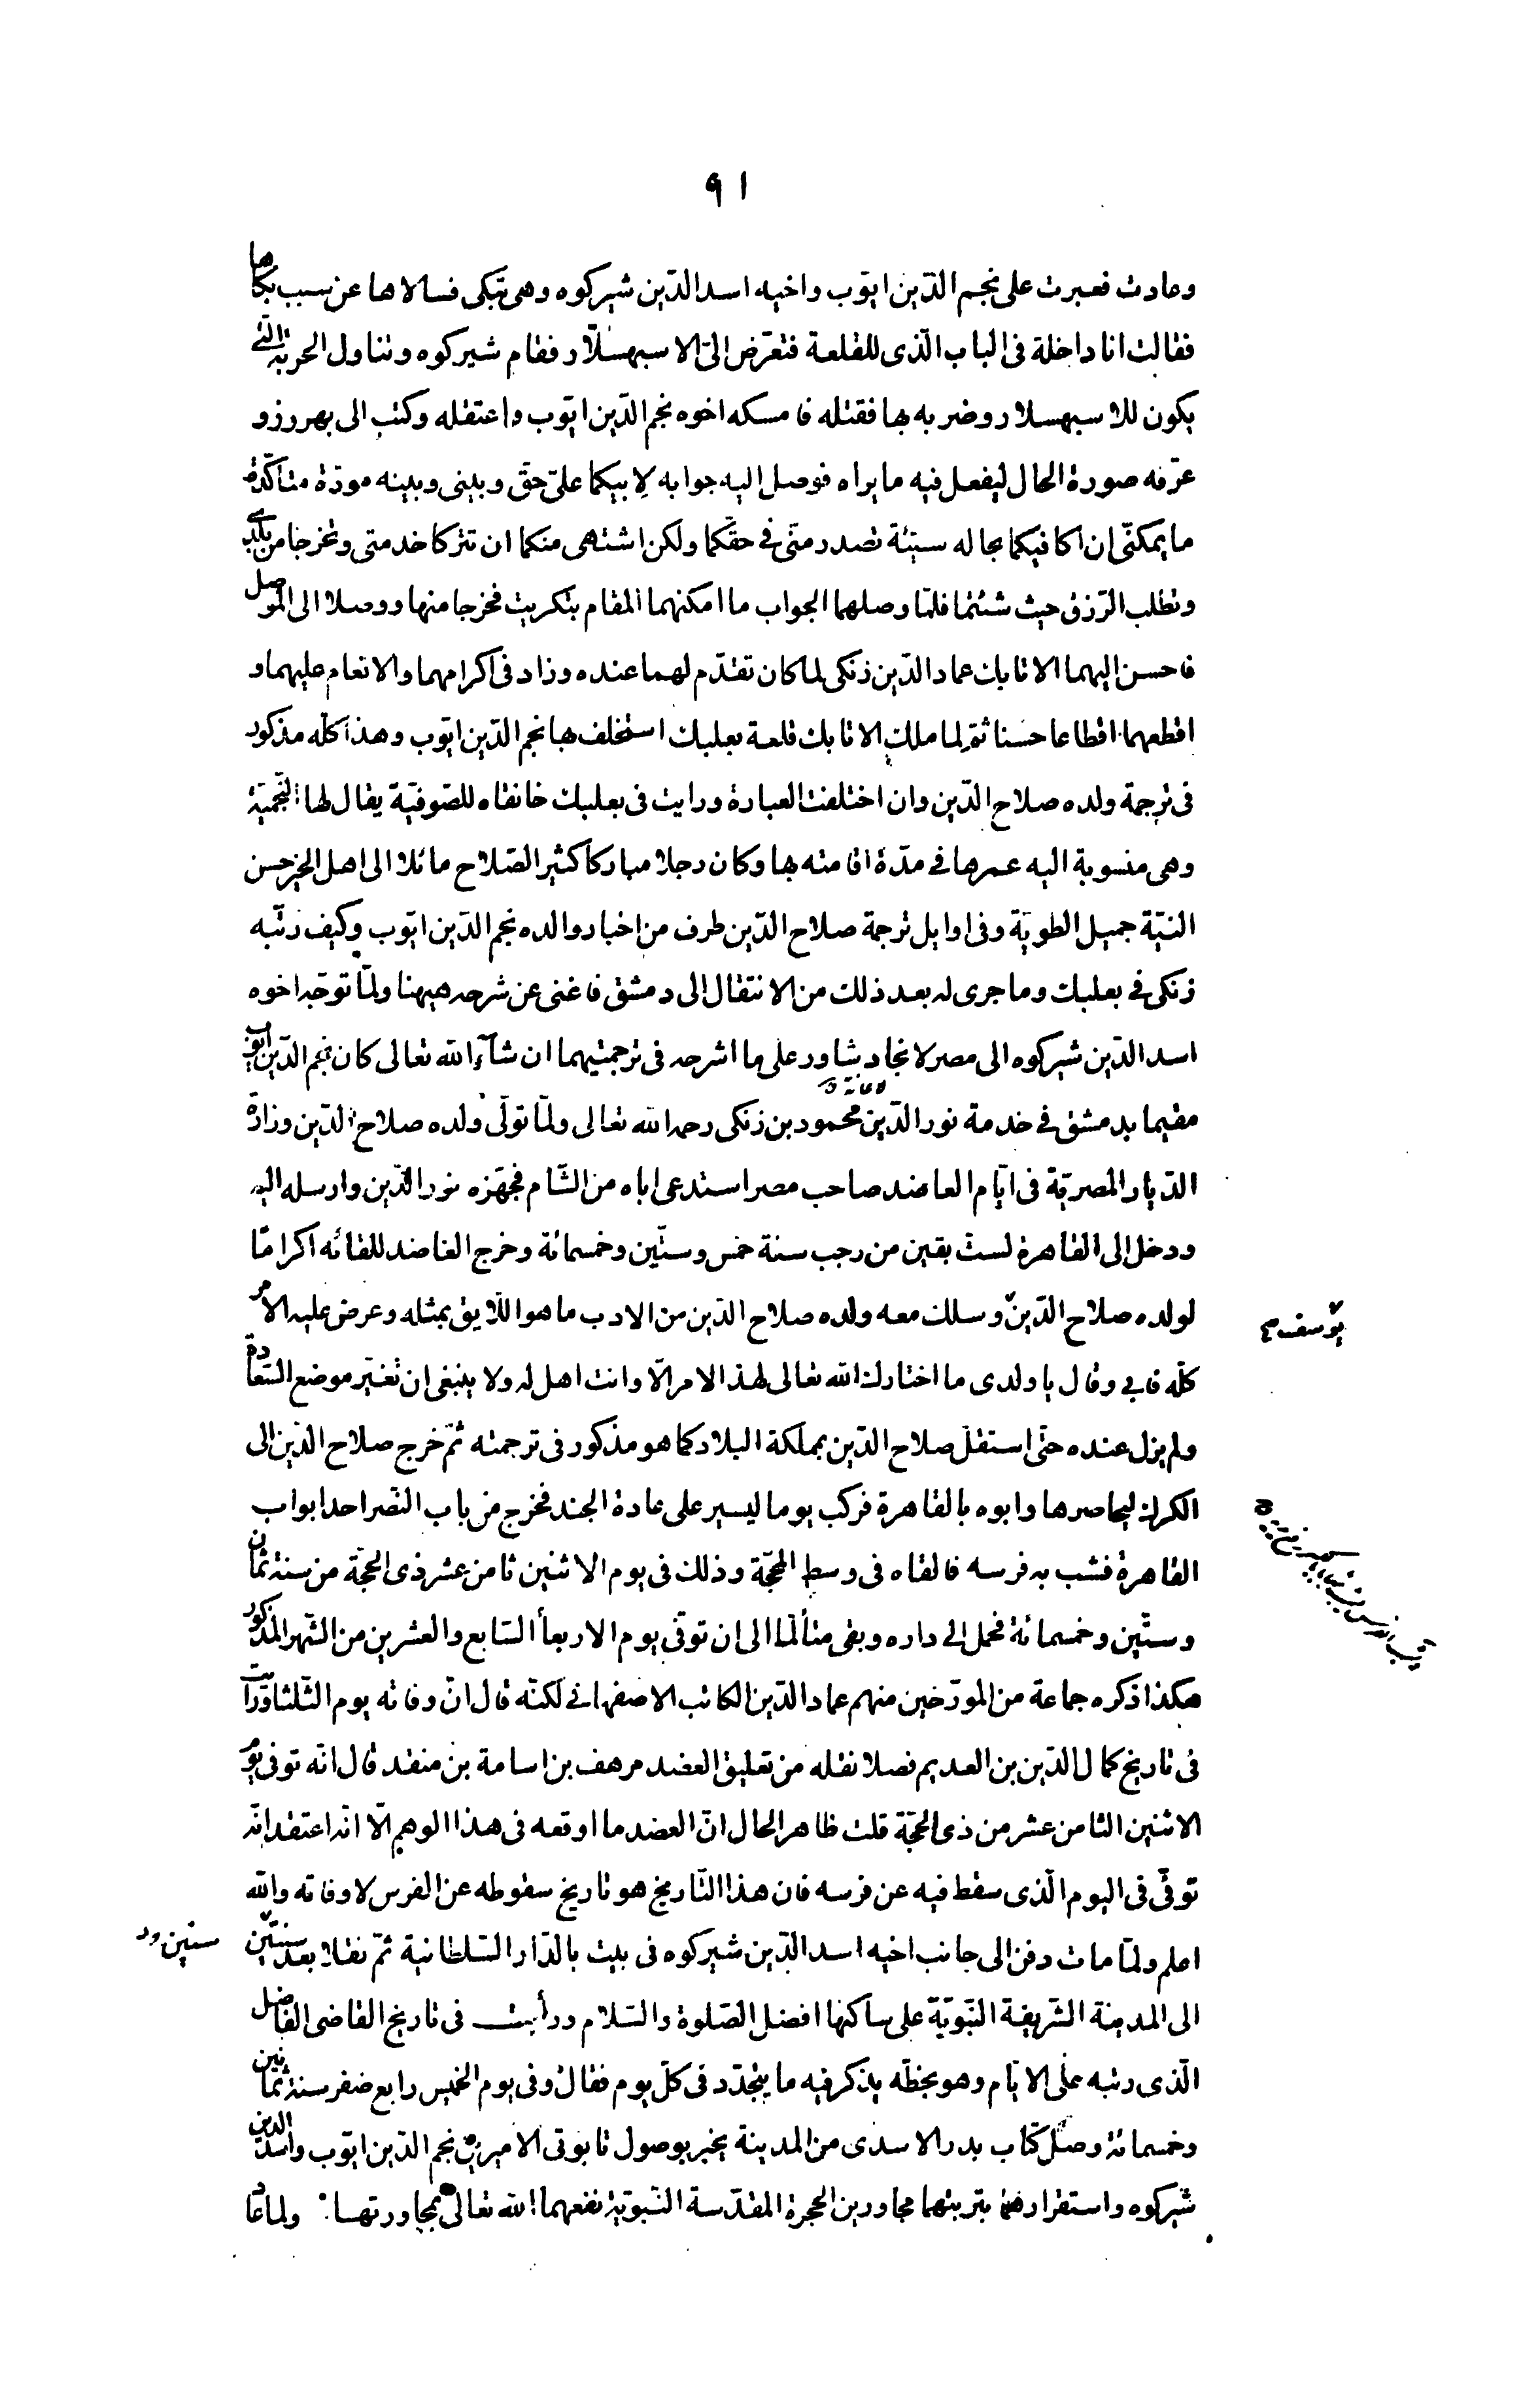 ٩١
وعادت فعبرت على نجم الدّين ايّوب واخيه اسد الدّين شيركوه وهى تبكى فسالاها عن سبب بكاها
فقالت انا داخلة فى الباب الّذى للقلعة فتعرّض الىّ الاسبهسلّار فقام شيركوه وتناول الحربة الّتى
يكون للاسبهسلار وضربه بها فقتله فامسكه اخوه نجم الدّين ايّوب واعتقله وكتب الى بهروز و
عرّفه صورة الحال ليفعل فيه ما يراه فوصل اليه جوابه لابيكما علىّ حقّ وبينى وبينه مودّة متأكّدة
ما يمكنّى ان اكافيكما بحاله سيّئة تصدر منّى فى حقّكما ولكن اشتهى منكما ان تتركا خدمتى وتخرجا من بلدى
وتطلب الرّزق حيث شئتما فلمّا وصلهما الجواب ما امكنهما المقام بتكريت فخرجا منها ووصلا الى الموصل
فاحسن اليهما الاتابك عماد الدّين زنكى لما كان تقدّم لهما عنده وزاد فى اكرامهما والانعام عليهما و
اقطعهما اقطاعا حسنا ثمّ لما ملك الاتابك قلعة بعلبك استخلف بها نجم الدّين ايّوب وهذا كلّه مذكور
فى ترجمة ولده صلاح الدّين وان اختلفت العبارة ورايت فى بعلبك خانقاه للصّوفيّة يقال لها النّجميّة
وهى منسوبة اليه عمرها فى مدّة اقامته بها وكان رجلا مباركا كثير الصّلاح مائلا الى اهل الخير حسن
النيّة جميل الطويّة وفى اوايل ترجمة صلاح الدّين طرف من اخبار والده نجم الدّين ايّوب وكيف رتّبه
زنكى فى بعلبك وما جرى له بعد ذلك من الانتقال الى دمشق فاغنى عن شرحه هيهنا ولمّا توجّه اخوه
اسد الدّين شيركوه الى مصر لانجاد شاور على ما اشرحه فى ترجمتيهما ان شآء الله تعالى كان نجم الدّين ايّوب
مقيما بدمشق فى خدمة نور الدّين محمود بن زنكى رحمه الله تعالى ولمّا تولّى ولده صلاح الدّين وزارة
الدّيار المصريّة فى ايّام العاضد صاحب مصر استدعى اباه من الشّام فجهّزه نور الدّين وارسله اليه
ودخل الى القاهرة لستّ بقين من رجب سنة خمس وستّين وخمسمائة وخرج العاضد للقائه اكراما
لولده صلاح الدّين وسلك معه ولده صلاح الدّين من الادب ما هو اللّايق بمثله وعرض عليه الامر
يوسف صح
كلّه فابى وقال يا ولدى ما اختارك الله تعالى لهذا الامر الّا وانت اهل له ولا ينبغى ان تغيّر موضع السّعادة
ولم يزل عنده حتّى استقلّ صلاح الدّين بمملكة البلاد كما هو مذكور فى ترجمته ثمّ خرج صلاح الدّين الى
الكرك ليحاصرها وابوه بالقاهرة فركب يوما ليسير على عادة الجند فخرج من باب النّصر احد ابواب
القاهرة فشب به فرسه فالقاه فى وسط المحجّة وذلك فى يوم الاثنين ثامن عشر ذى الحجّة من سنة ثمان
وستّين وخمسمائة فحمل الى داره وبقى متألّما الى ان توفّى يوم الاربعأ السّابع والعشرين من الشّهر المذكور
هكذا ذكره جماعة من المورّخين منهم عماد الدّين الكاتب الاصفهانى لكنّه قال انّ وفاته يوم الثّلثا ورأيت
فى تاريخ كمال الدّين بن العديم فصلا نقله من تعليق العضد مرهف بن اسامة بن منقذ قال انّه توفى يوم
الاثنين الثامن عشر من ذى الحجّة قلت ظاهر الحال انّ العضد ما اوقعه فى هذا الوهم الّا انّه اعتقد انّه
توفّى فى اليوم الّذى سقط فيه عن فرسه فان هذا التّاريخ هو تاريخ سقوطه عن الفرس لا وفاته والله
اعلم ولمّا مات دفن الى جانب اخيه اسد الدّين شيركوه فى بيت بالدّار السّلطانية ثمّ نقلا بعد سنتين
سنين
الى المدينة الشّريفة النّبويّة على ساكنها افضل الصّلوة والسّلام ورأيت فى تاريخ القاضى الفاضل
الّذى رتبه على الايّام وهو بخطّه يذكر فيه ما يتجدّد فى كلّ يوم فقال وفى يوم الخميس رابع صفر سنة ثمانين
وخمسمائة وصل كتاب بدر الاسدى من المدينة يخبر بوصول تابوتى الاميرين نجم الدّين ايّوب واسد الدين
شيركوه واستقرارهما بتربتهما مجاورين الحجرة المقدّسة النّبويّة نفعهما الله تعالى بمجاورتها ولما عا